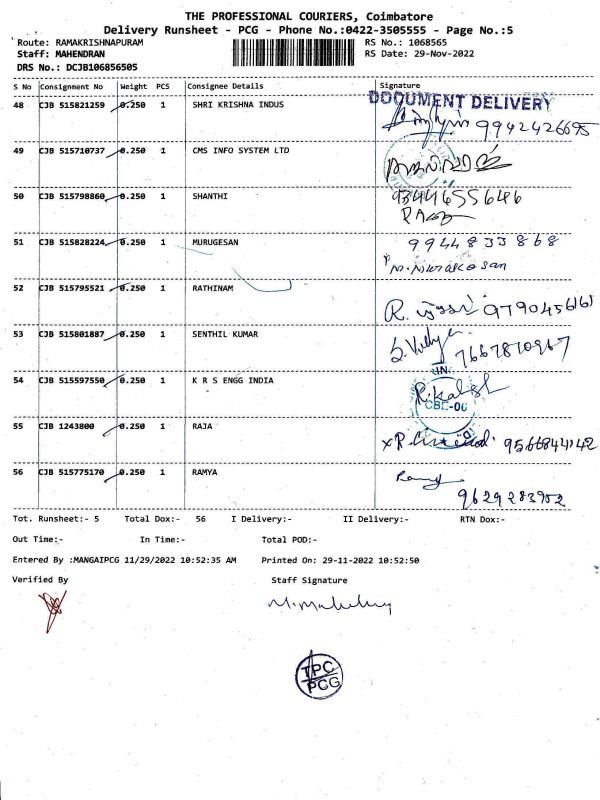 THE PROFESSIONAL COURIERS, Coimbatore
Delivery Runsheet - PCG - Phone No.:0422-3505555 - Page No.:5
Route: RAMAKRISHNAPURAM RS No.: 1068565
Staff: MAHENDRAN RS Date: 29-Nov-2022
DRS No.: DCJB106856505
S No Consignment No Weight PCS Consignee Details Signature
DOCUMENT DELIVERY
48 CJB 515821259 0.250 1 SHRI KRISHNA INDUS 9942426695
49 CJB 515710737 0.250 1 CMS INFO SYSTEM LTD
50 CJB 515798860 0.250 1 SHANTHI 9344655646
51 CJB 515828224 0.250 1 MURUGESAN 9944833868
52 CJB 515795521 0.250 1 RATHINAM
R. 9790456161
53 CJB 515801887 0.250 1 SENTHIL KUMAR 7667810967
54 CJB 515597550 0.250 1 K R S ENGG INDIA
CBE-06
55 CJB 1243800 0.250 1 RAJA
9566844142
56 CJB 515775170 0.250 1 RAMYA
9629283902
Tot. Runsheet:- 5 Total Dox:- 56 I Delivery:- II Delivery:- RTN Dox:-
Out Time:- In Time:- Total POD:-
Entered By :MANGAIPCG 11/29/2022 10:52:35 AM Printed On: 29-11-2022 10:52:50
Verified By Staff Signature
TPC
PCG